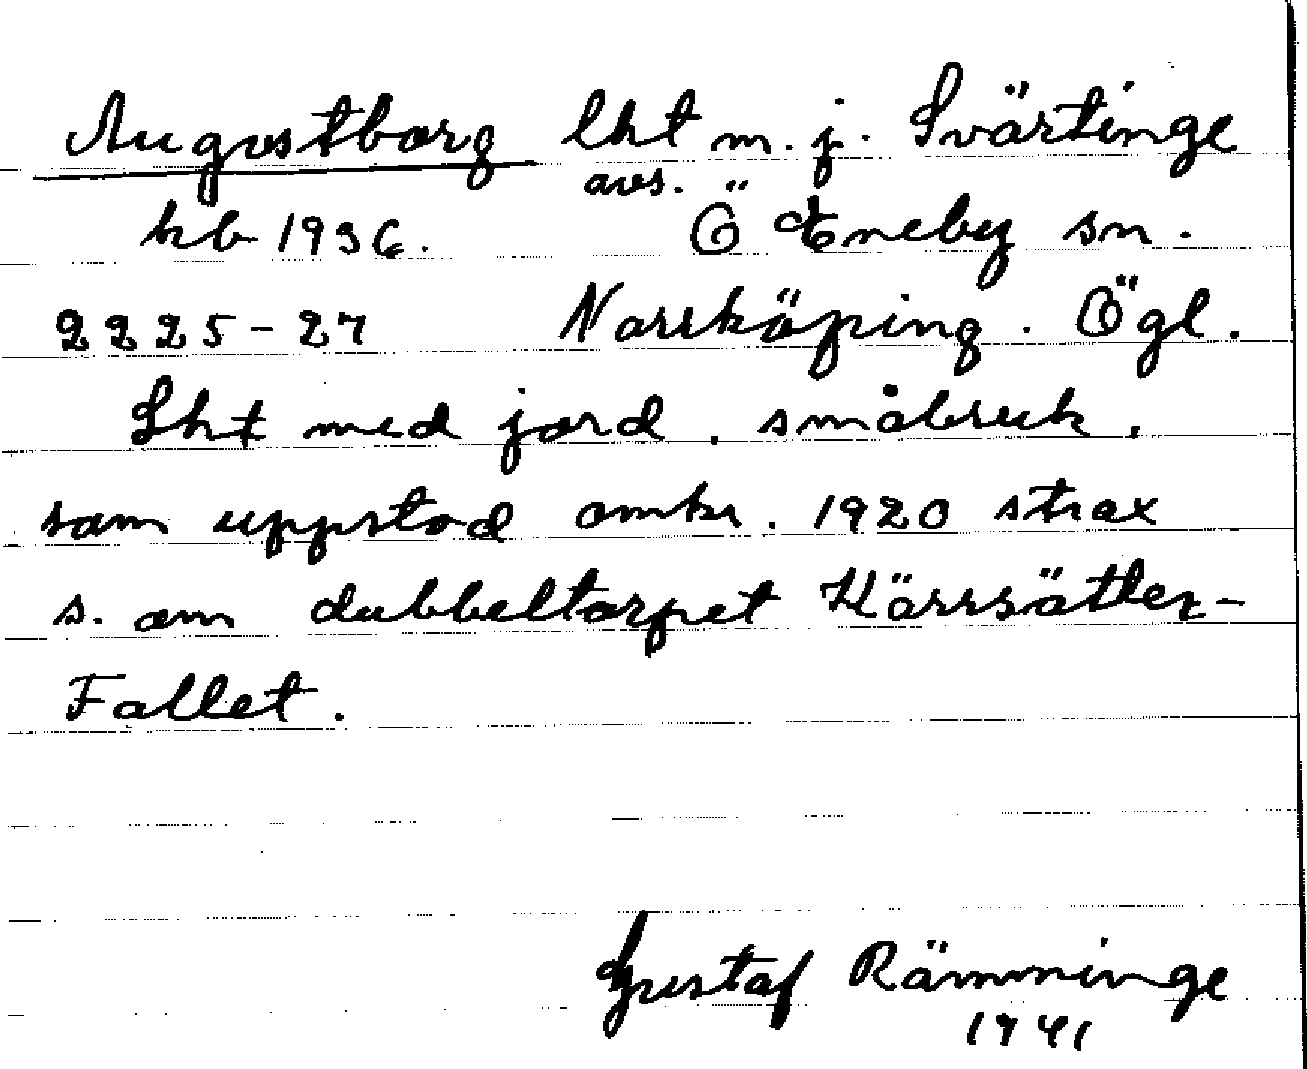 Augustborg lht m. j. Svärtinge
avs.
kb 1936. Ö Eneby sn.
2225-27 Norrköping. Ögl.
Lht med jord, småbruk,
som uppstod omkr. 1920 strax
s. om dubbeltorpet Kärrsätter-
Fallet.
Gustaf Rämminge
1941